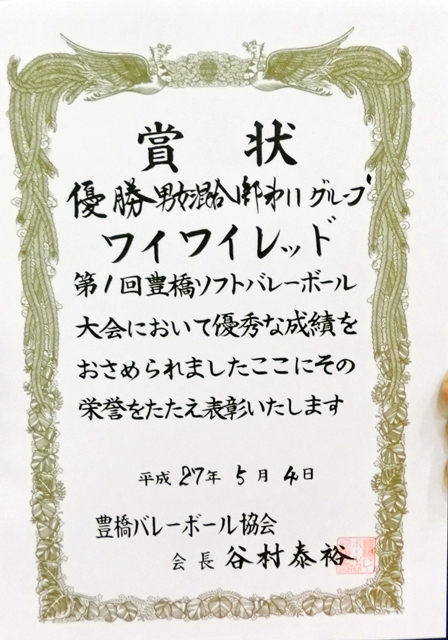 賞状
優勝 男女混合 グループ
ワイワイレッド
第1回豊橋ソフトバレーボール
大会において優秀な成績を
おさめられましたここにその
栄誉をたたえ表彰いたします
平成27年5月4日
豊橋バレーボール協会
会長 谷村泰裕